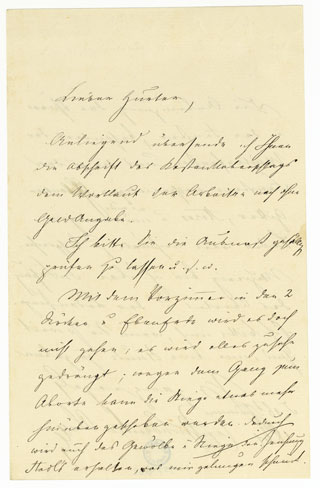 Lieber Hurter,
Anliegend übersende ich Ihnen
die Abschrift des Kostenüberschlags
dem Wortlaut der Arbeiten nach ohne
Geld Angabe.
Ich bitte Sie die Ausmaß gefälligst
prüfen zu lassen u. s. w.
Mit dem Vorzimmer in den 2
Stöcken u Ebenerde wird es doch
nicht gehen, es wird alles zu sehr
gedrängt; wegen dem Gang zum
Aborte kann die Stiege etwas mehr
hinüber geschoben werden. dadurch
wird auch das Gewölbe u Stiege
erhalten, was mir gelungen scheint.